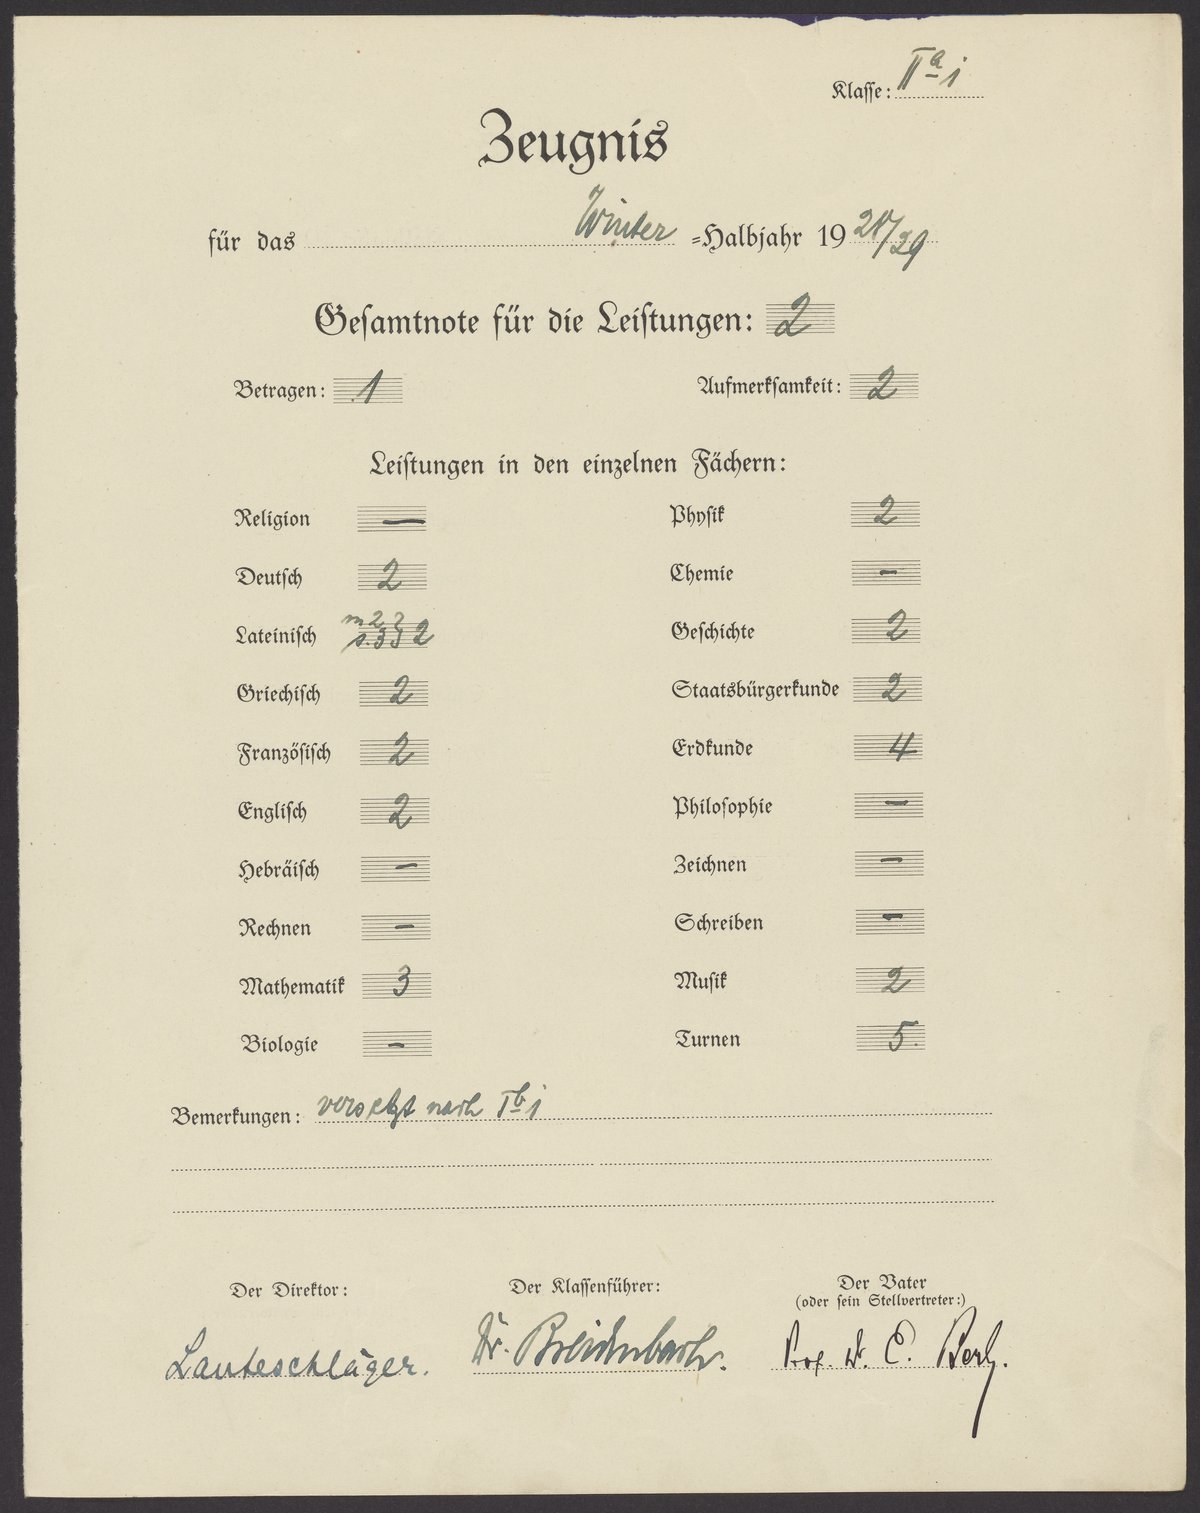 Klasse: IIa i
Zeugnis
für das Winter =Halbjahr 1928/29
Gesamtnote für die Leistungen: 2
Betragen: 1 Aufmerksamkeit: 2
Leistungen in den einzelnen Fächern:
Religion — Physik 2
Deutsch 2 Chemie —
m 2 2
Lateinisch s. 3 3 2 Geschichte 2
Griechisch 2 Staatsbürgerkunde 2
Französisch 2 Erdkunde 4
Englisch 2 Philosophie —
Hebräisch — Zeichnen —
Rechnen — Schreiben —
Mathematik 3 Musik 2
Biologie — Turnen 5.
Bemerkungen: versetzt nach Ib i
Der Direktor: Der Klassenführer: Der Vater
(oder sein Stellvertreter:)
Lauteschläger. Dr. Breidenbach. Prof. Dr. E. Berl.